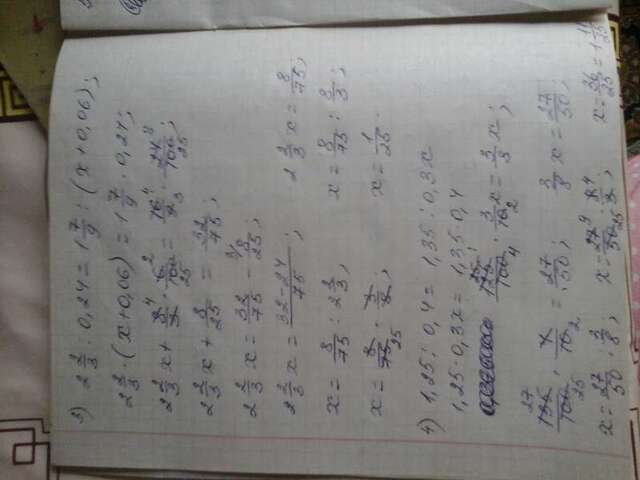 3) 2 2/3 : 0,24 = 1 7/9 : (x + 0,06);
2 2/3 · (x + 0,06) = 1 7/9 · 0,24;
2 2/3 x + 8/3 · 6/100 = 16/9 · 24/100;
2 2/3 x + 4/25 = 32/75;
2 2/3 x = 32/75 -
2 2/3 x = 32-24/75; 2 2/3 x = 8/75;
x = 8/75 : 2 2/3; x = 8/75 : 8/3;
x = 8/75 · 3/8; x = 1/25.
4) 1,25 : 0,4 = 1,35 : 0,3x
1,25 · 0,3x = 1,35 · 0,4
125/100 · 3/10 x = 3/8 x;
135/100 · 4/10 = 27/50; 3/8 x = 27/50;
x = 27/50 : 3/8; x = 27/50 · 8/3; x = 36/25 = 1 11/25